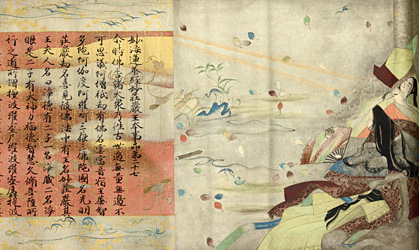 妙法蓮華經妙莊嚴王本事品第二十七
尒時佛告諸大衆乃往古世過無量無邊不
可思議阿僧祇劫有佛名雲雷音宿王華智
多陀阿伽度阿羅訶三藐三佛陀國名光明
莊嚴劫名喜見彼佛法中有王名妙莊嚴其
王夫人名曰淨德有二子一名淨藏二名淨
眼是二子有大神力福德智慧久修菩薩所
行之道所謂檀波羅蜜尸羅波羅蜜羼提波